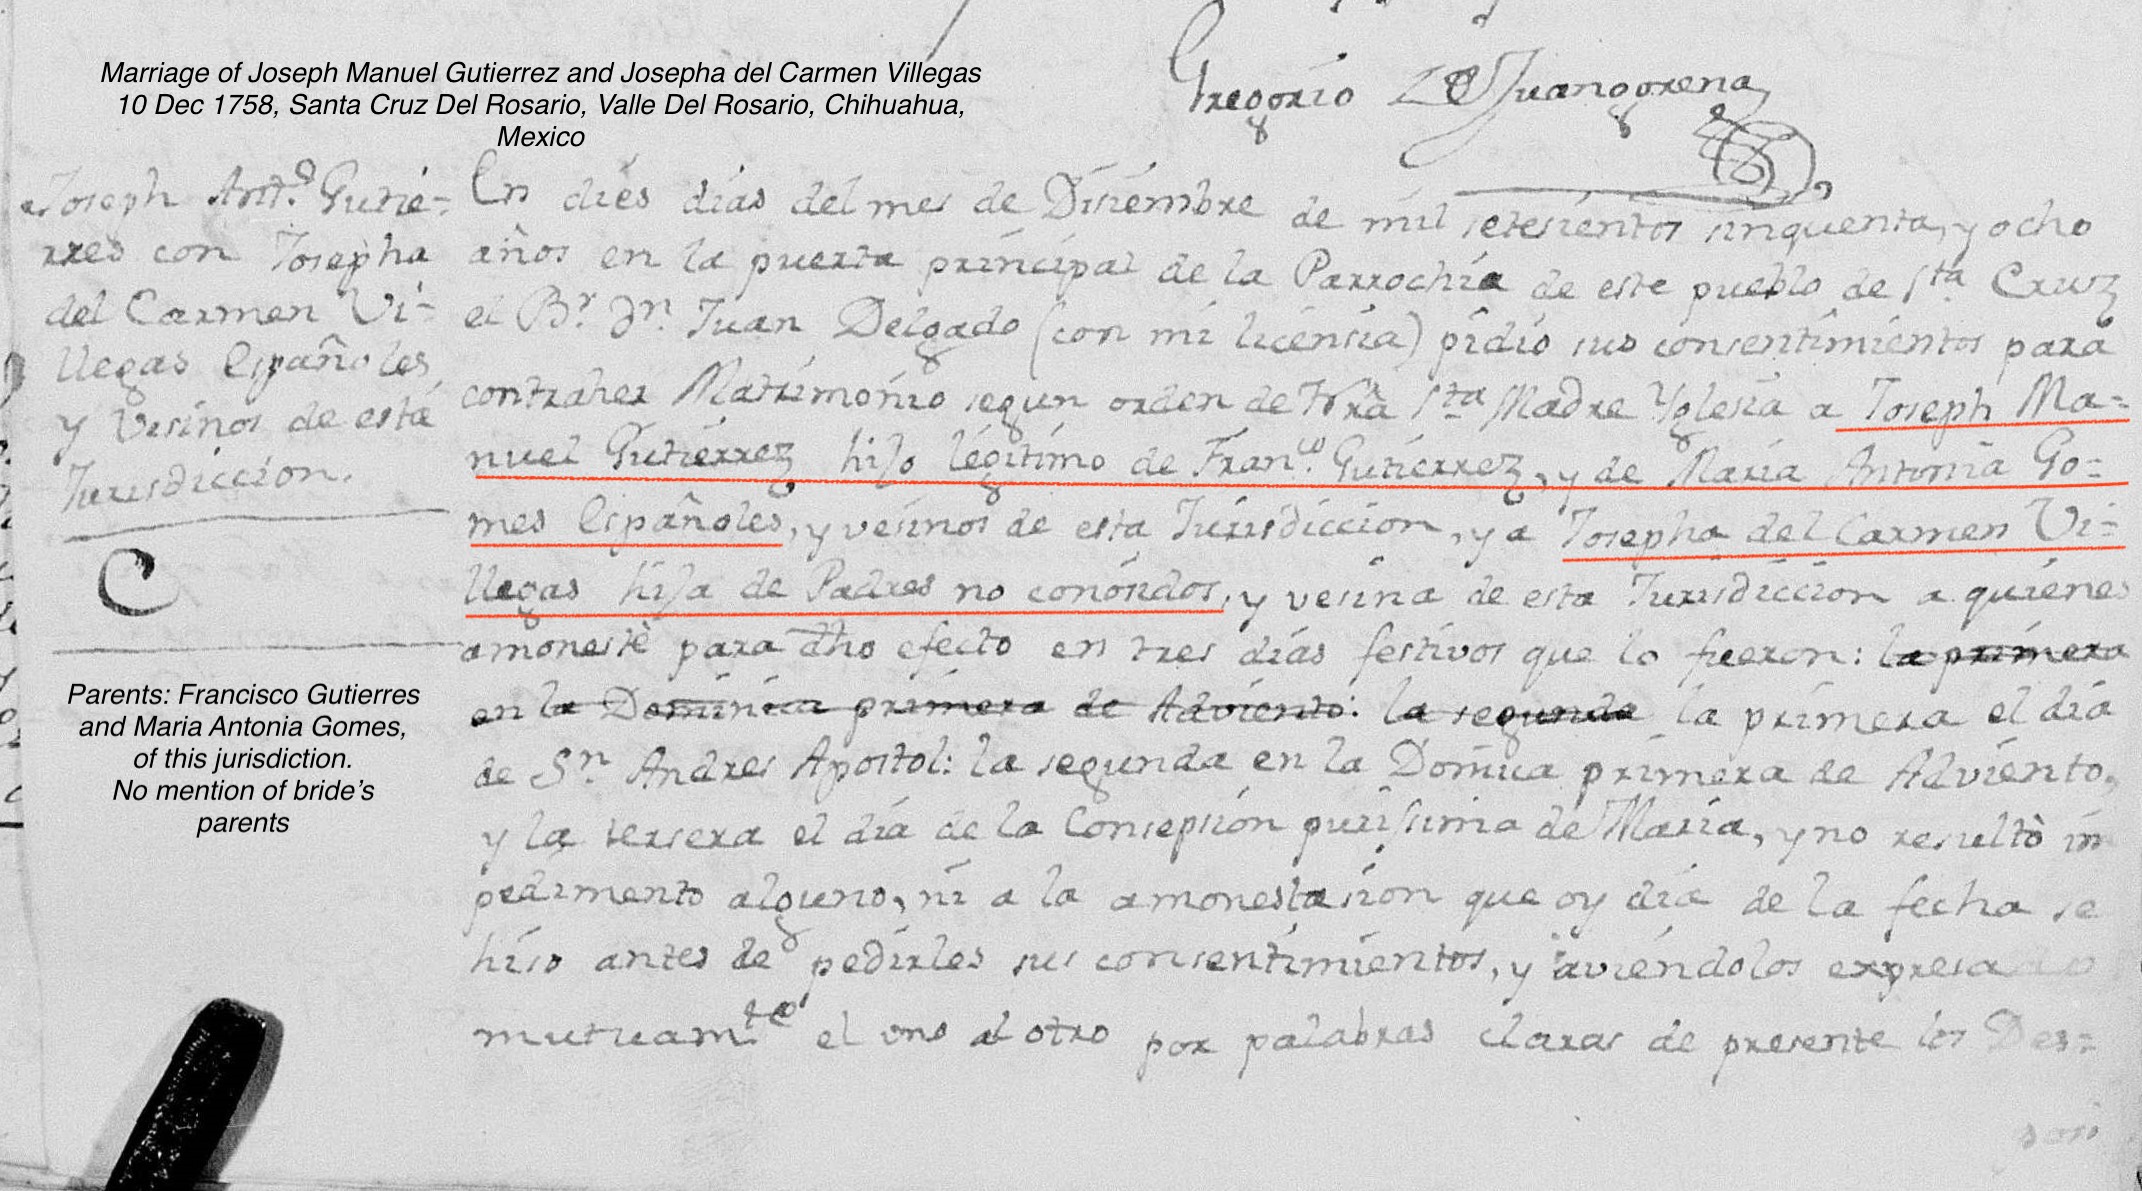 Marriage of Joseph Manuel Gutierrez and Josepha del Carmen Villegas
10 Dec 1758, Santa Cruz Del Rosario, Valle Del Rosario, Chihuahua,
Mexico
Gregorio Juangorena
Joseph Antº Gutie=
rres con Josepha
del Carmen Vi=
llegas Españoles
y Vesinos de esta
Jurisdiccion.
C
Parents: Francisco Gutierres
and Maria Antonia Gomes,
of this jurisdiction.
No mention of bride's
parents
En dies dias del mes de Disiembre de mil setesientos sinquenta, y ocho
años en la puerta principal de la Parrochia de este pueblo de Sta Cruz
el Br. Dn. Juan Delgado (con mi licensia) pidio sus consentimientos para
contraher Matrimonio segun orden de Nra Sta Madre Yglesia a Joseph Ma=
nuel Gutierrez hijo legitimo de Franco. Gutierrez, y de Maria Antonia Go=
mes Españoles, y vesinos de esta Jurisdiccion, y a Josepha del Carmen Vi=
llegas hija de Padres no conosidos, y vesina de esta Jurisdiccion a quienes
amonestè para dho efecto en tres dias festivos que lo fueron: la primera
en la Dominica primera de Adviento: la segunda la primera el dia
de Sn Andres Apostol: la segunda en la Domica primera de Adviento,
y la tersera el dia de la Consepsion purissima de Maria, y no resultò im
pedimento alguno, ni a la amonestasion que oy dia de la fecha se
hiso antes de pedirles sus consentimientos, y aviendolos expresado
mutuamte el uno al otro por palabras claras de presente los Des=
posè